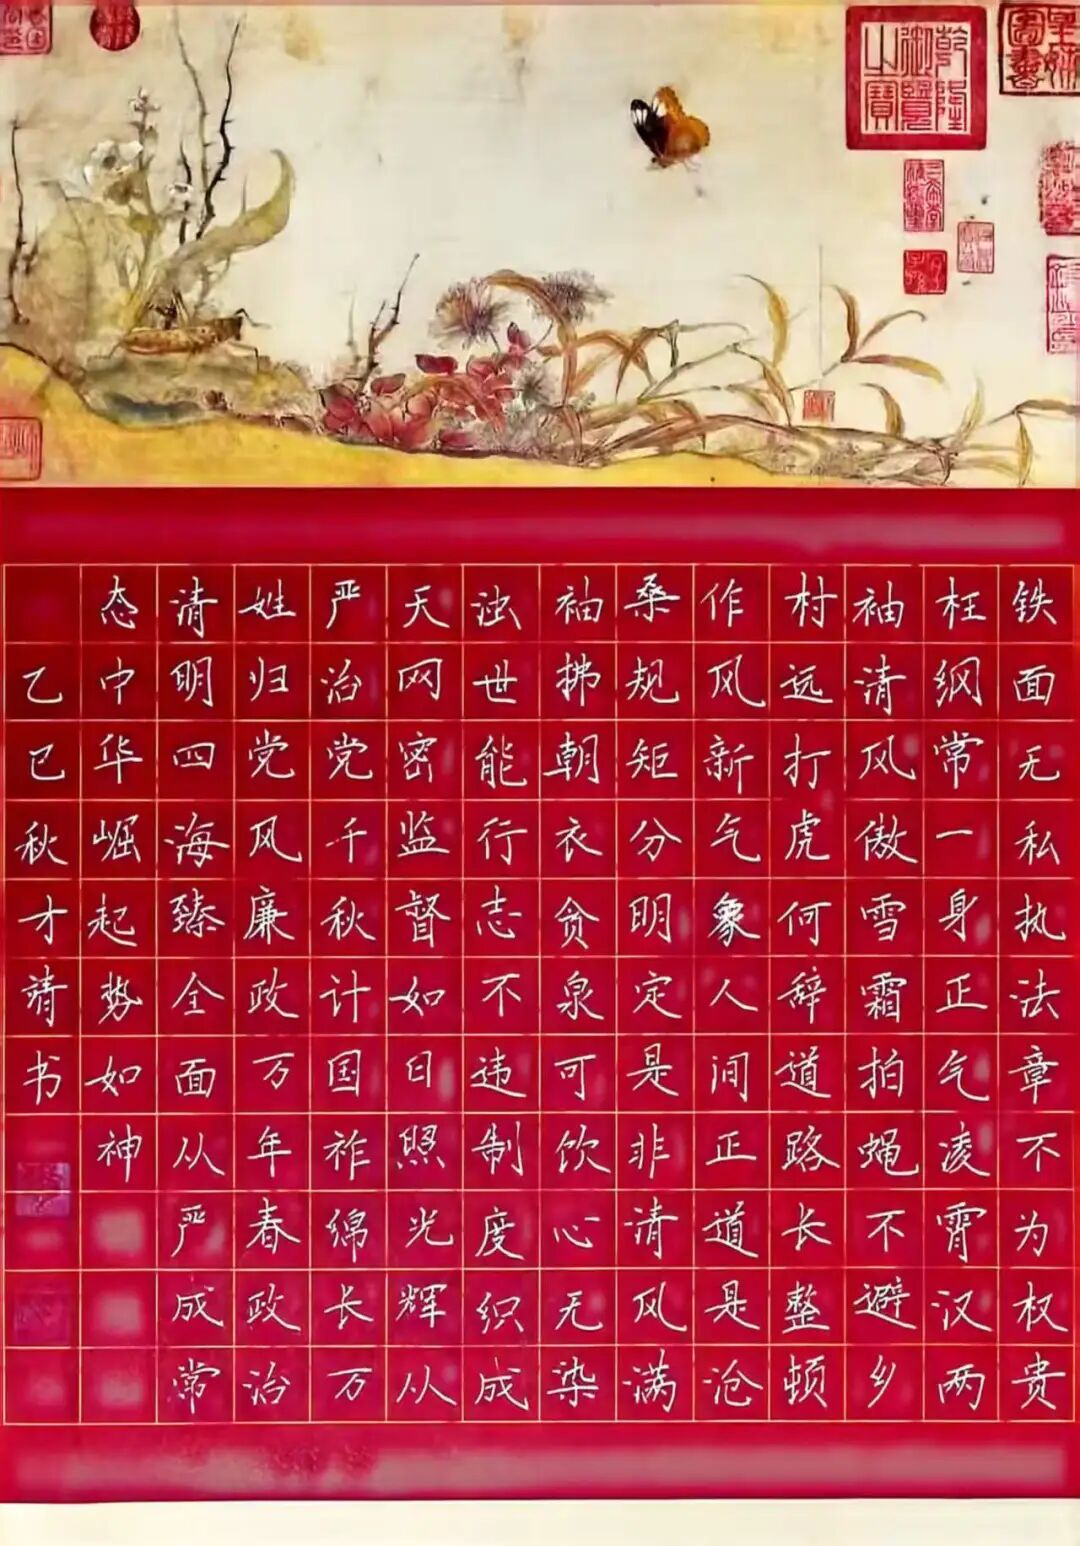 乾隆
御覽
之寶
铁面无私执法章不为权贵
枉纲常一身正气凌霄汉两
袖清风傲雪霜拍蝇不避乡
村远打虎何辞道路长整顿
作风新气象人间正道是沧
桑规矩分明定是非清风满
袖拂朝衣贪泉可饮心无染
浊世能行志不违制度织成
天网密监督如日照光辉从
严治党千秋计国祚绵长万
姓归党风廉政万年春政治
清明四海臻全面从严成常
态中华崛起势如神
乙巳秋才靖书